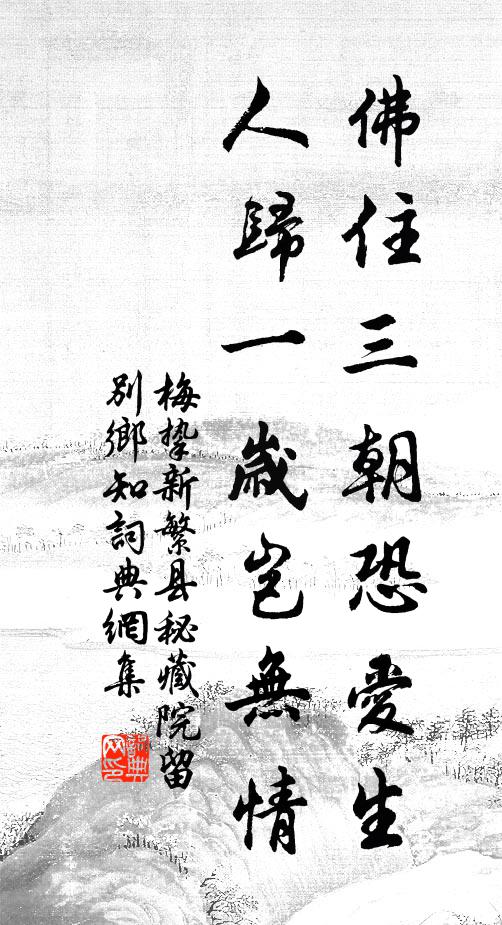 佛住三朝恐愛生
人歸一歲岂無情
梅挚新繁县秘藏院留
别鄉知詞典網集
詞典网印